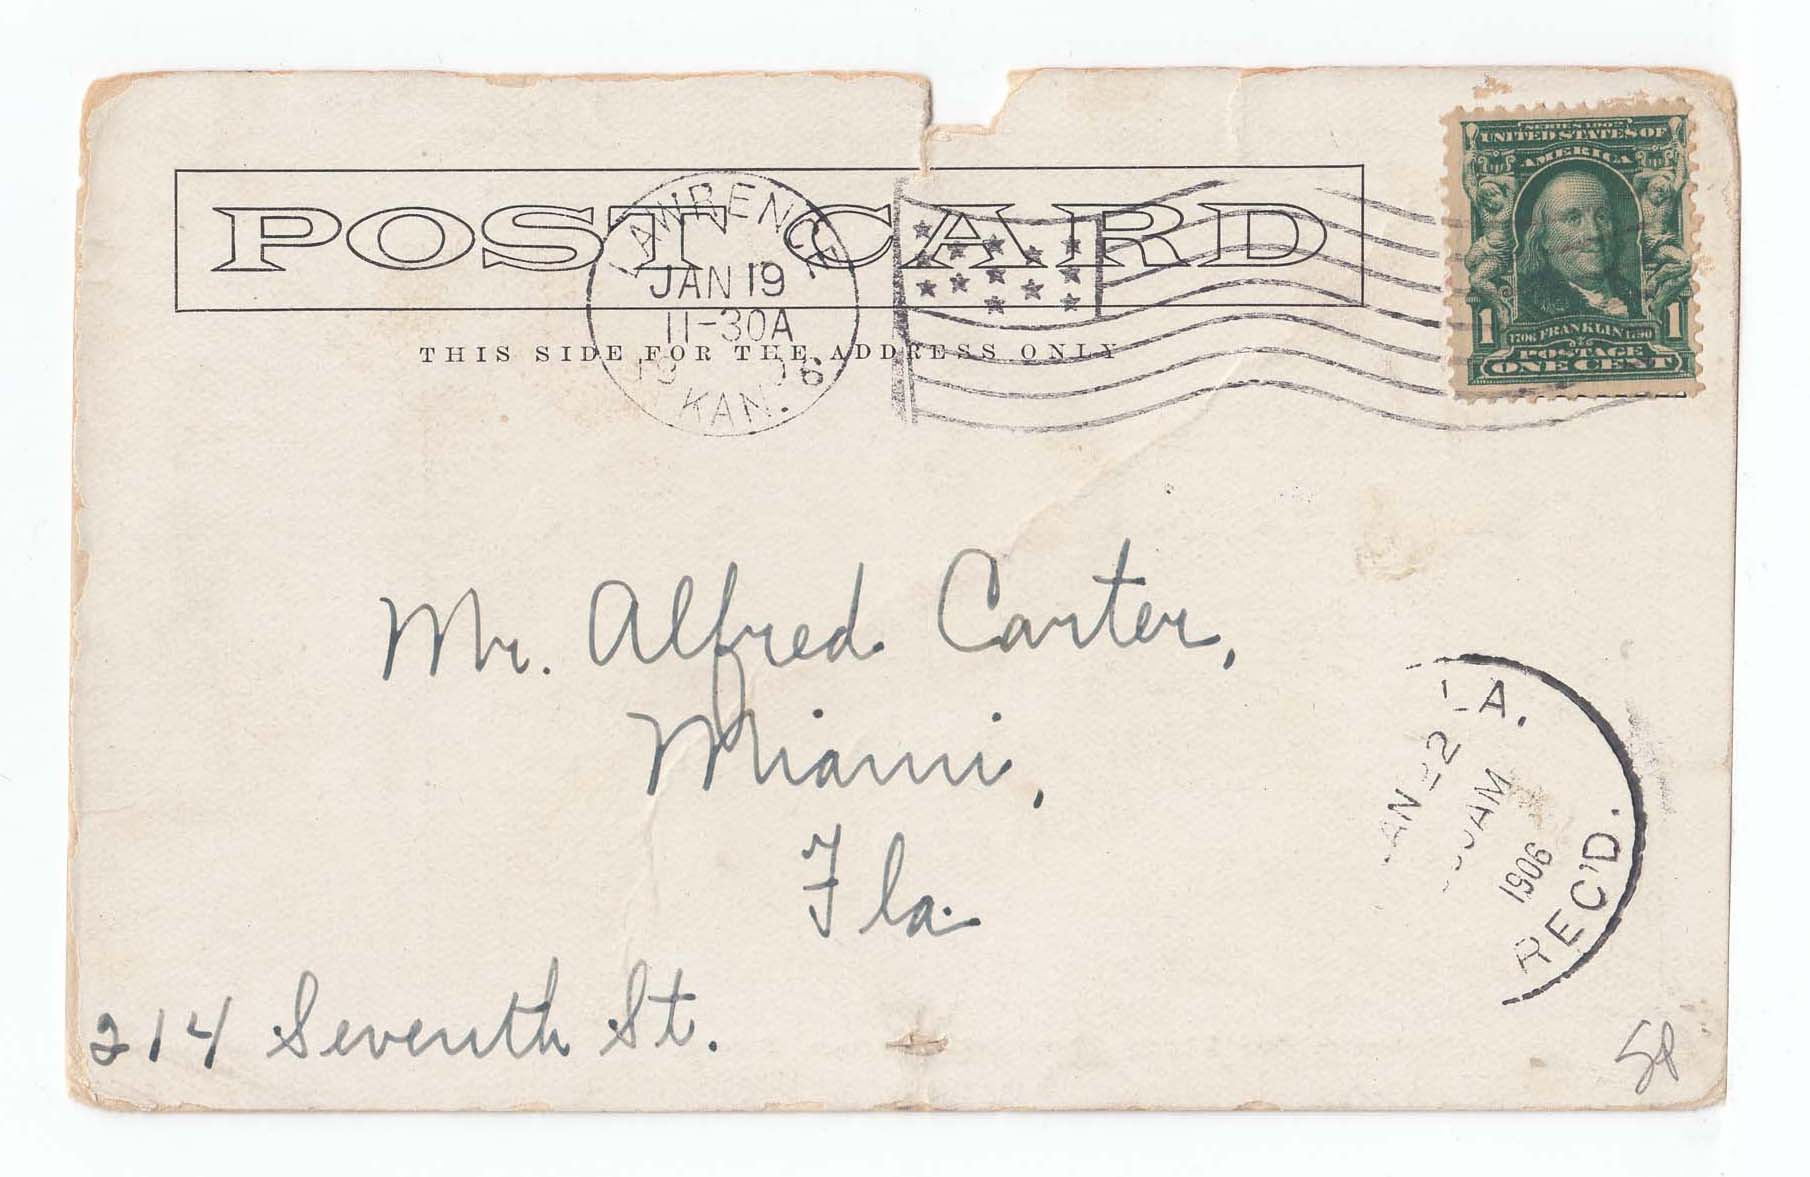 POST CARD
THIS SIDE FOR THE ADDRESS ONLY
LAWRENCE
JAN 19
11-30A
KAN.
SERIES 1902
UNITED STATES OF
AMERICA
1 1706 FRANKLIN 1790 1
POSTAGE
ONE CENT
Mr. Alfred Carter,
Miami,
Fla.
214 Seventh St.
LA.
JAN 22
AM
1906
REC'D.